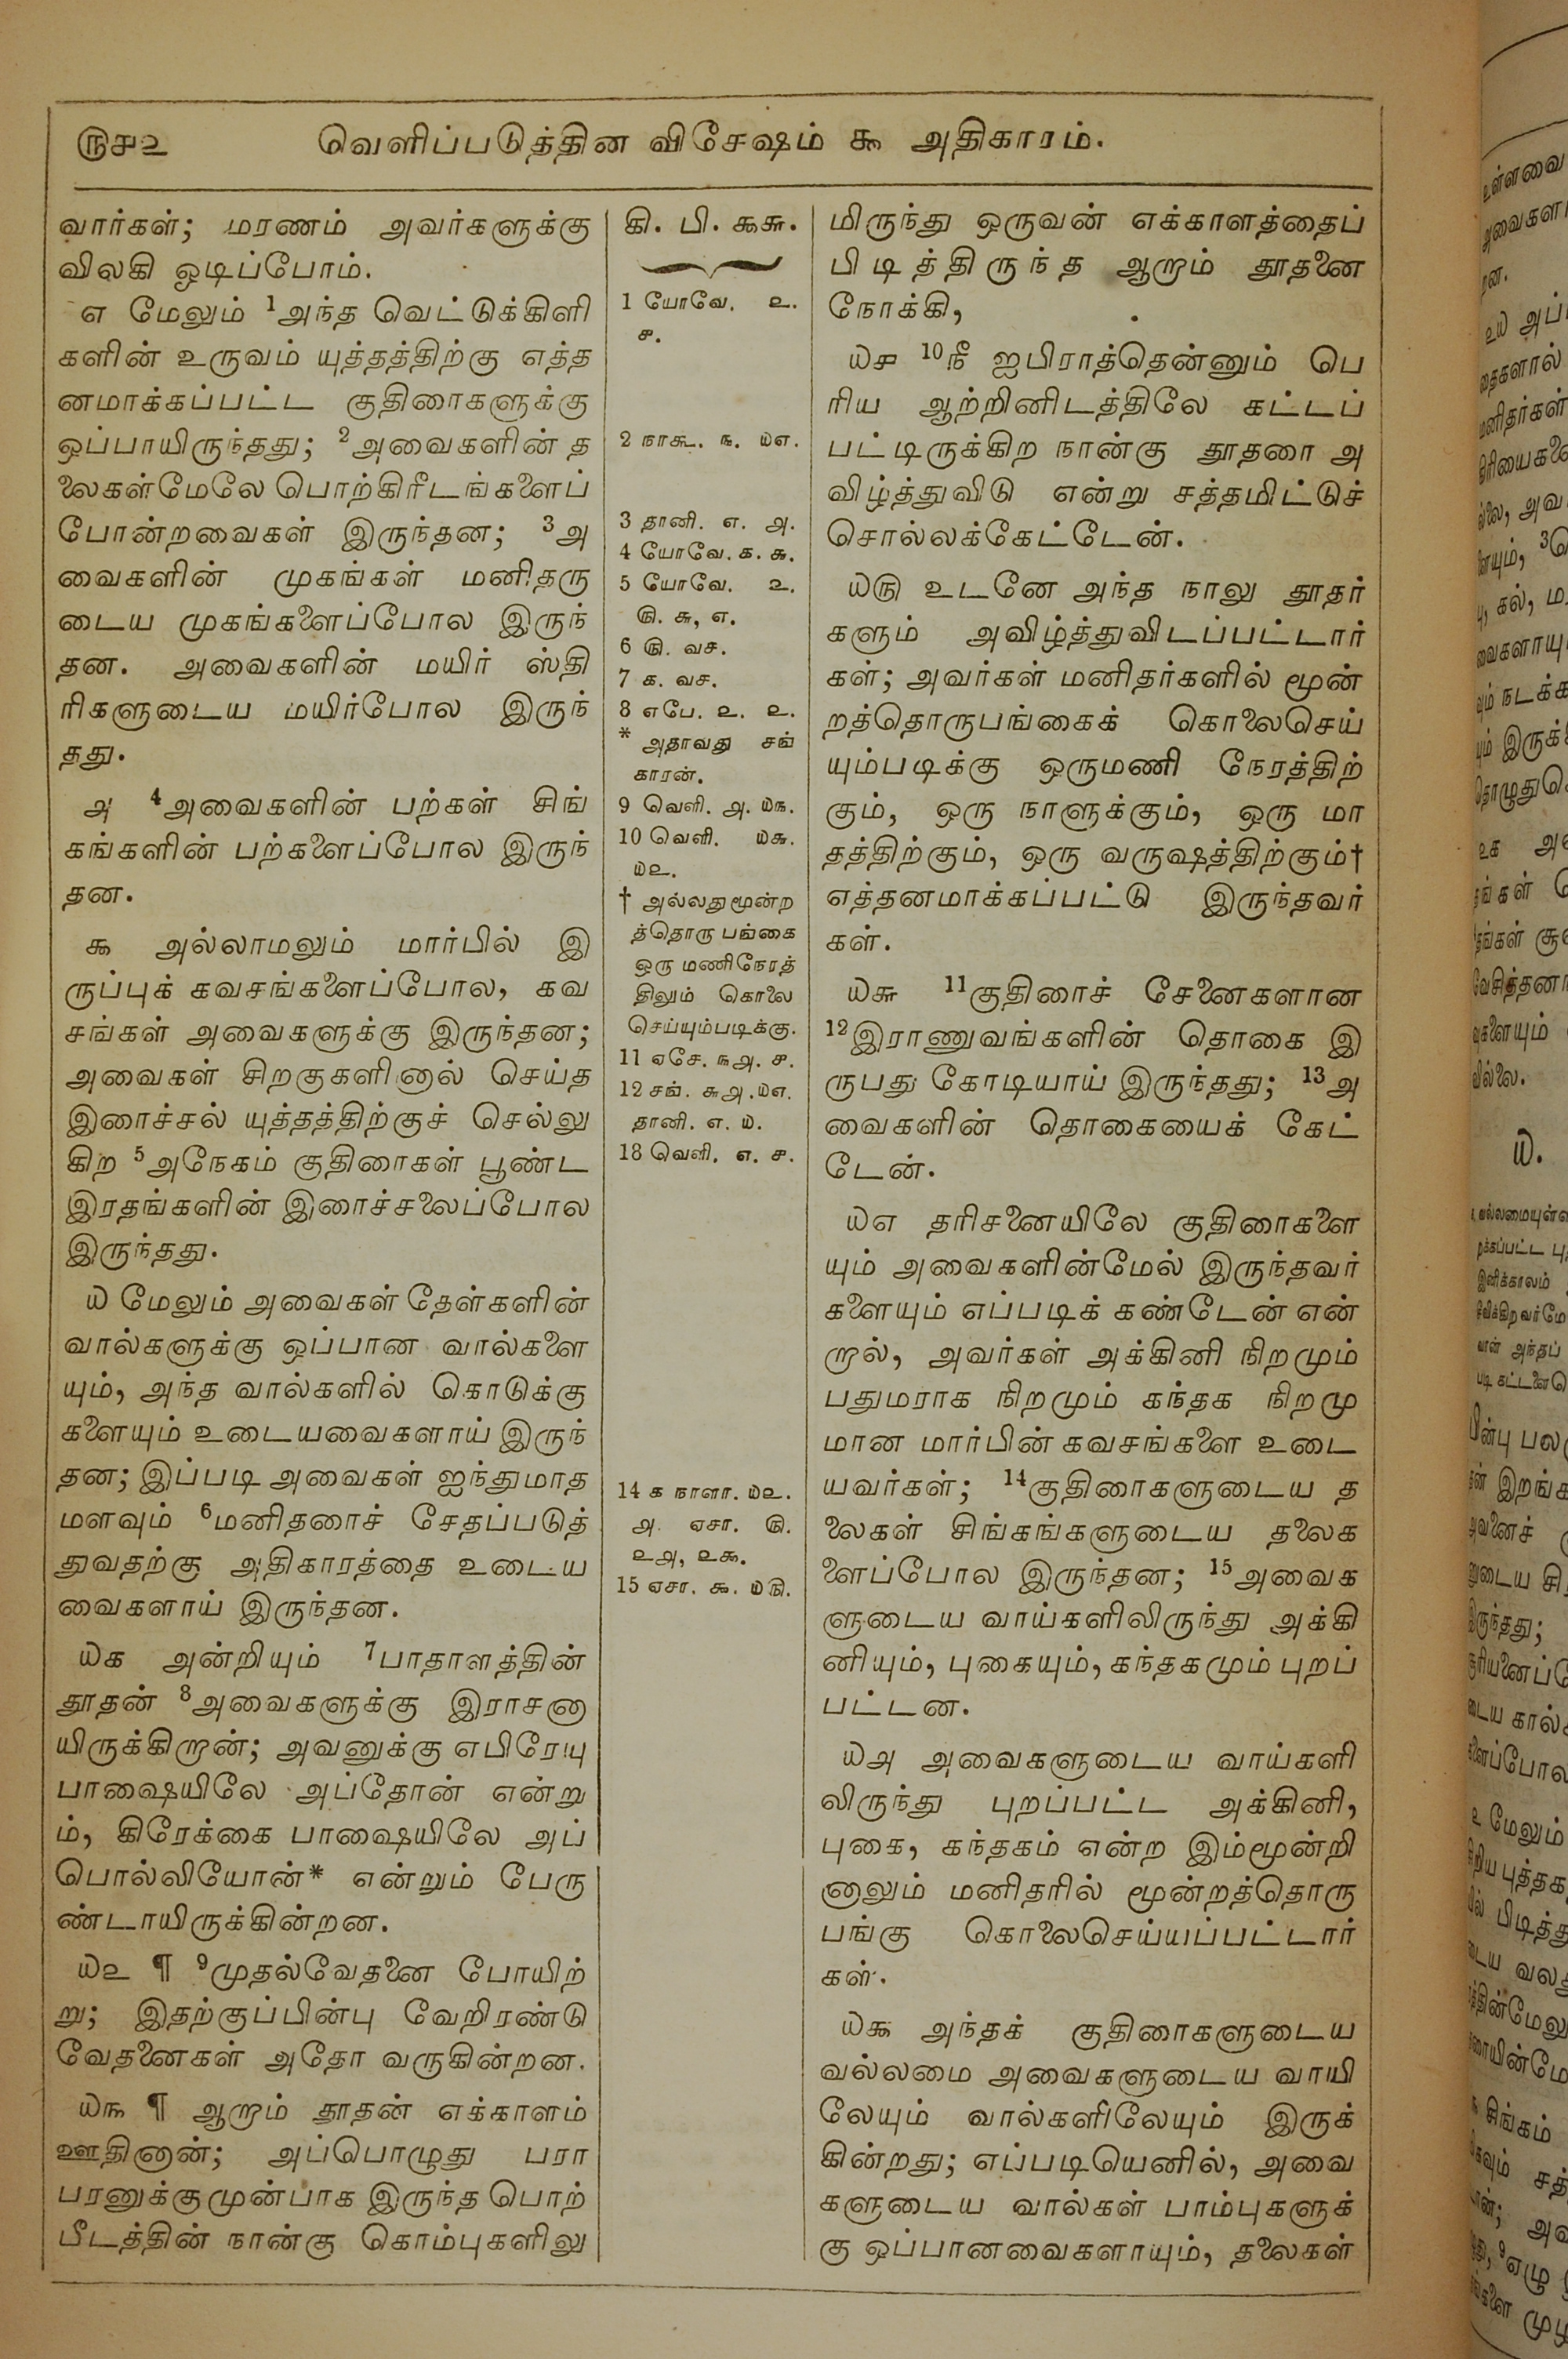 ௫௪௨ வெளிப்படுத்தின விசேஷம் ௯ அதிகாரம்.
வார்கள்; மரணம் அவர்களுக்கு
விலகி ஓடிப்போம்.
௭ மேலும் 1அந்த வெட்டுக்கிளி
களின் உருவம் யுத்தத்திற்கு எத்த
னமாக்கப்பட்ட குதிரைகளுக்கு
ஒப்பாயிருந்தது; 2அவைகளின் த
லைகள்மேலே பொற்கிரீடங்களைப்
போன்றவைகள் இருந்தன; 3அ
வைகளின் முகங்கள் மனிதரு
டைய முகங்களைப்போல இருந்
தன. அவைகளின் மயிர் ஸ்தி
ரிகளுடைய மயிர்போல இருந்
தது.
௮ 4அவைகளின் பற்கள் சிங்
கங்களின் பற்களைப்போல இருந்
தன.
௯ அல்லாமலும் மார்பில் இ
ருப்புக் கவசங்களைப்போல, கவ
சங்கள் அவைகளுக்கு இருந்தன;
அவைகள் சிறகுகளினால் செய்த
இரைச்சல் யுத்தத்திற்குச் செல்லு
கிற 5அநேகம் குதிரைகள் பூண்ட
இரதங்களின் இரைச்சலைப்போல
இருந்தது.
௰ மேலும் அவைகள் தேள்களின்
வால்களுக்கு ஒப்பான வால்களை
யும், அந்த வால்களில் கொடுக்கு
களையும் உடையவைகளாய் இருந்
தன; இப்படி அவைகள் ஐந்துமாத
மளவும் 6மனிதரைச் சேதப்படுத்
துவதற்கு அதிகாரத்தை உடைய
வைகளாய் இருந்தன.
௰௧ அன்றியும் 7பாதாளத்தின்
தூதன் 8அவைகளுக்கு இராசனா
யிருக்கிறான்; அவனுக்கு எபிரேயு
பாஷையிலே அப்தோன் என்று
ம், கிரேக்கை பாஷையிலே அப்
பொல்லியோன்* என்றும் பேரு
ண்டாயிருக்கின்றன.
௰௨ ¶ 9முதல்வேதனை போயிற்
று; இதற்குப்பின்பு வேறிரண்டு
வேதனைகள் அதோ வருகின்றன.
௰௩ ¶ ஆறாம் தூதன் எக்காளம்
ஊதினான்; அப்பொழுது பரா
பரனுக்குமுன்பாக இருந்த பொற்
பீடத்தின் நான்கு கொம்புகளிலு
கி. பி. ௯௬.
1 யோவே. ௨.
௪.
2 நாகூ. ௩. ௰௭.
3 தானி. ௭. ௮.
4 யோவே. ௧. ௬.
5 யோவே. ௨.
௫. ௬, ௭.
6 ௫. வச.
7 ௧. வச.
8 எபே. ௨. ௨.
* அதாவது சங்
காரன்.
9 வெளி. ௮. ௰௩.
10 வெளி. ௰௬.
௰௨.
† அல்லது மூன்ற
த்தொரு பங்கை
ஒரு மணிநேரத்
திலும் கொலை
செய்யும்படிக்கு.
11 ஏசே. ௩௮. ௪.
12 சங். ௬௮. ௰௭.
தானி. ௭. ௰.
18 வெளி. ௭. ௪.
14 ௧ நாளா. ௰௨.
௮. ஏசா. ௫.
௨௮, ௨௯.
15 ஏசா. ௯. ௰௫.
மிருந்து ஒருவன் எக்காளத்தைப்
பிடித்திருந்த ஆறாம் தூதனை
நோக்கி,
௰௪ 10நீ ஐபிராத்தென்னும் பெ
ரிய ஆற்றினிடத்திலே கட்டப்
பட்டிருக்கிற நான்கு தூதரை அ
விழ்த்துவிடு என்று சத்தமிட்டுச்
சொல்லக்கேட்டேன்.
௰௫ உடனே அந்த நாலு தூதர்
களும் அவிழ்த்துவிடப்பட்டார்
கள்; அவர்கள் மனிதர்களில் மூன்
றத்தொருபங்கைக் கொலைசெய்
யும்படிக்கு ஒருமணி நேரத்திற்
கும், ஒரு நாளுக்கும், ஒரு மா
தத்திற்கும், ஒரு வருஷத்திற்கும்†
எத்தனமாக்கப்பட்டு இருந்தவர்
கள்.
௰௬ 11குதிரைச் சேனைகளான
12இராணுவங்களின் தொகை இ
ருபது கோடியாய் இருந்தது; 13அ
வைகளின் தொகையைக் கேட்
டேன்.
௰௭ தரிசனையிலே குதிரைகளை
யும் அவைகளின்மேல் இருந்தவர்
களையும் எப்படிக் கண்டேன் என்
றால், அவர்கள் அக்கினி நிறமும்
பதுமராக நிறமும் கந்தக நிறமு
மான மார்பின் கவசங்களை உடை
யவர்கள்; 14குதிரைகளுடைய த
லைகள் சிங்கங்களுடைய தலைக
ளைப்போல இருந்தன; 15அவைக
ளுடைய வாய்களிலிருந்து அக்கி
னியும், புகையும், கந்தகமும் புறப்
பட்டன.
௰௮ அவைகளுடைய வாய்களி
லிருந்து புறப்பட்ட அக்கினி,
புகை, கந்தகம் என்ற இம்மூன்றி
னாலும் மனிதரில் மூன்றத்தொரு
பங்கு கொலைசெய்யப்பட்டார்
கள்.
௰௯ அந்தக் குதிரைகளுடைய
வல்லமை அவைகளுடைய வாயி
லேயும் வால்களிலேயும் இருக்
கின்றது; எப்படியெனில், அவை
களுடைய வால்கள் பாம்புகளுக்
கு ஒப்பானவைகளாயும், தலைகள்